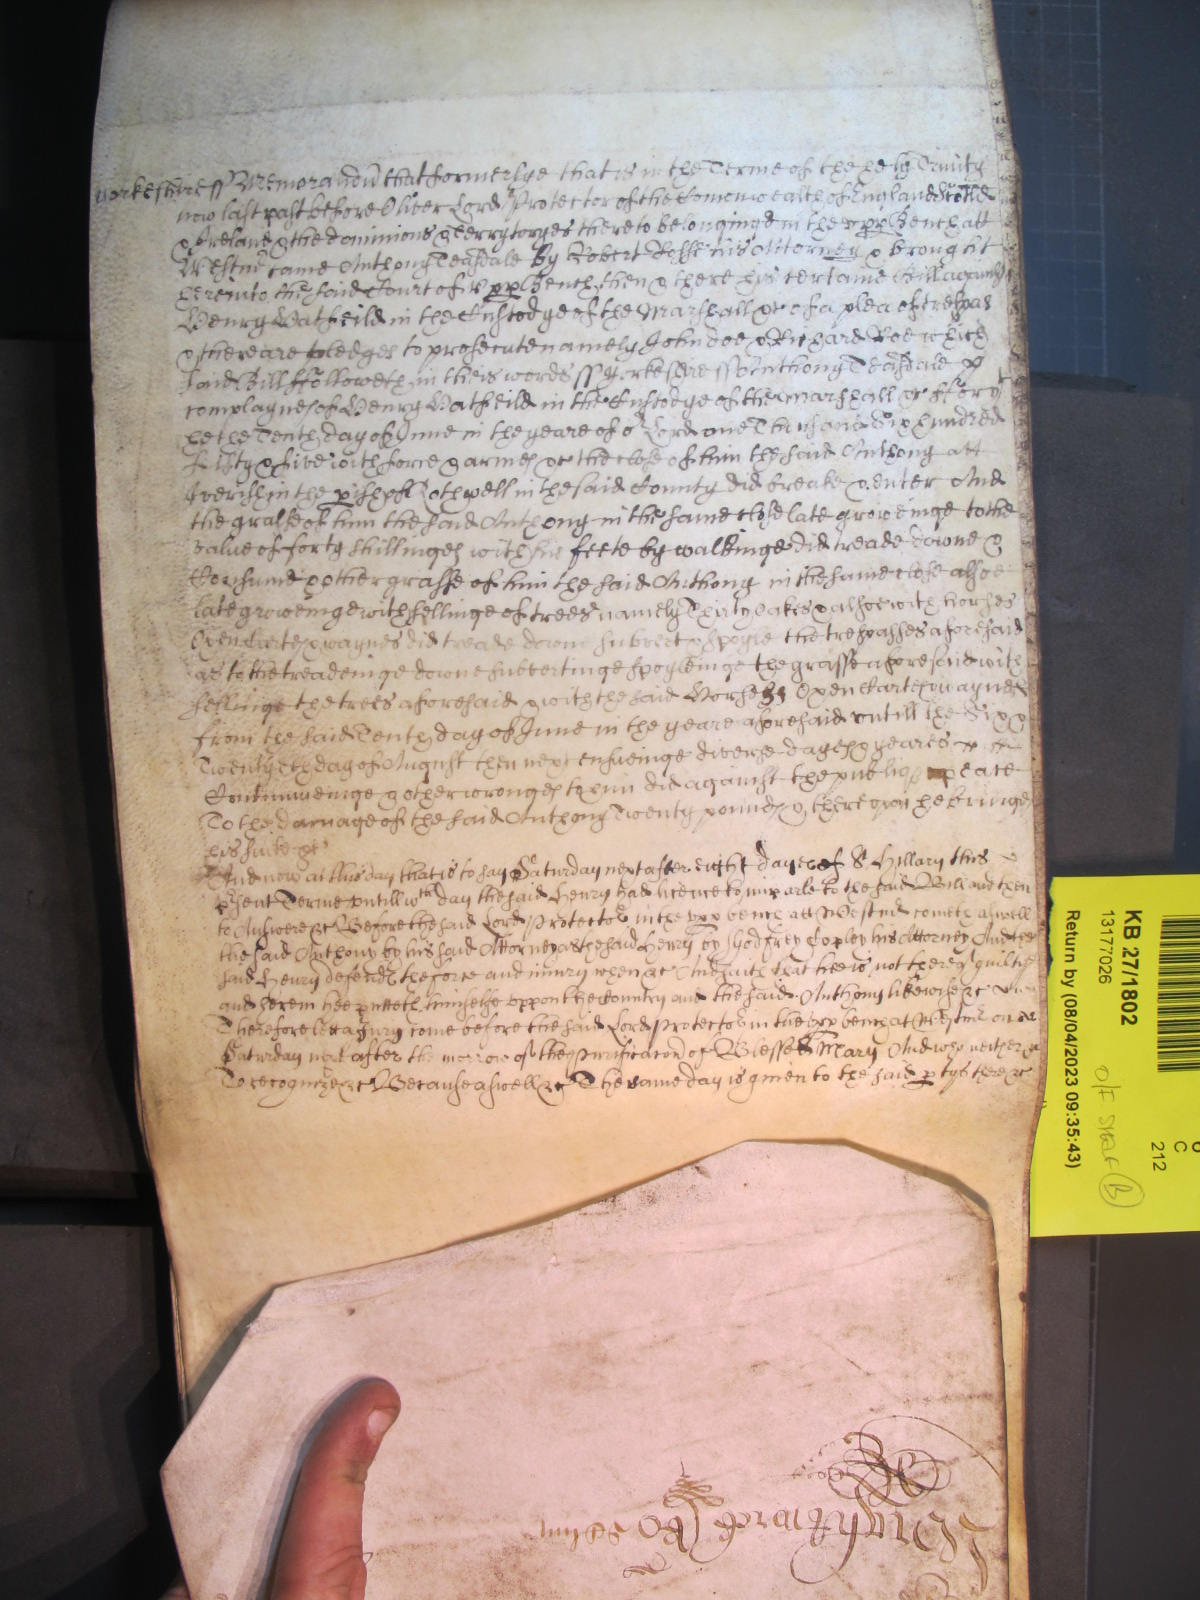 Yorkeshire ss Memorandũ that formerlye that is in the Terme of the holy Trinity
now last past before Oliver Lord Protector of the Comonwealth of England Scotld
& Ireland & the dominions & terrytoryes thereto belonginge in the upp Bench att
Westmr came Anthony Teasdale by Robert Rosse his Attorney & brought
hereinto the said Court of ye upp Bench then & there his certaine Bill against
Henry Hatfeild in the Custodye of the Marshall &c of a plea of trespas
& there are pledges to prosecute namely John doe & Richard Roe which
said Bill followeth in theis words ss Yorkeshire ss Anthony Teasdale
complaynes of Henry Hatfeild in the Custodye of the Marshall &c for yt
he the Tenth day of June in the yeare of or Lord one Thousand Six hundred
Fifty & five with force & armes &c the close of him the said Anthony att
in the pish of Rothwell in the said County did breake & enter And
the grasse of him the said Anthony in the same close late groweinge to the
value of forty shillinges with his feete by walkinge did treade downe &
Consume & other grasse of him the said Anthony in the same close alsoe
late groweinge with fellinge of trees namely Thirty oakes & alsoe with horses
Oxen Cartes & waynes did treade downe subvert & spoyle the trespasses aforesaid
as to the treadeinge downe subvertinge & spoyleinge the grasse aforesaid with
fellinge the trees aforesaid & with the said Horses Oxen Cartes & waynes
from the said Tenth day of June in the yeare aforesaid untill the Six &
Twentyeth day of August then next ensueinge diverse dayes & yeares
Continnueinge & other wronges to him did against the publiq peace
To the damage of the said Anthony Twenty poundes & thereupon he bringes
his suite &c
And now at this day that is to say Saturday next after eight dayes of St Hillary this
psent Terme untill wch day the said Henry had licence to imparle to the said Bill and then
to Answere &c Before the said Lord Protector in the upp bench att Westmr cometh aswell
the said Anthony by his said Attorney as the said Henry by Godfrey Copley his Attorney And the
said Henry defends the force and iniury when &c And saith that hee is not thereof guiltie
and hereon hee putteth himselfe uppon the Country and the said Anthony likewise &c
Therefore let a Jury come before the said Lord Protector in the upp bench at Westmr on
Saturday next after the morrow of the Purificacon of Blessed Mary And who neither &c
To recognize &c Because aswell &c The same day is given to the said ptyes there &c
KB 27/1802
13177026
Return by (08/04/2023 09:35:43)
O/F SHELF B
C
212